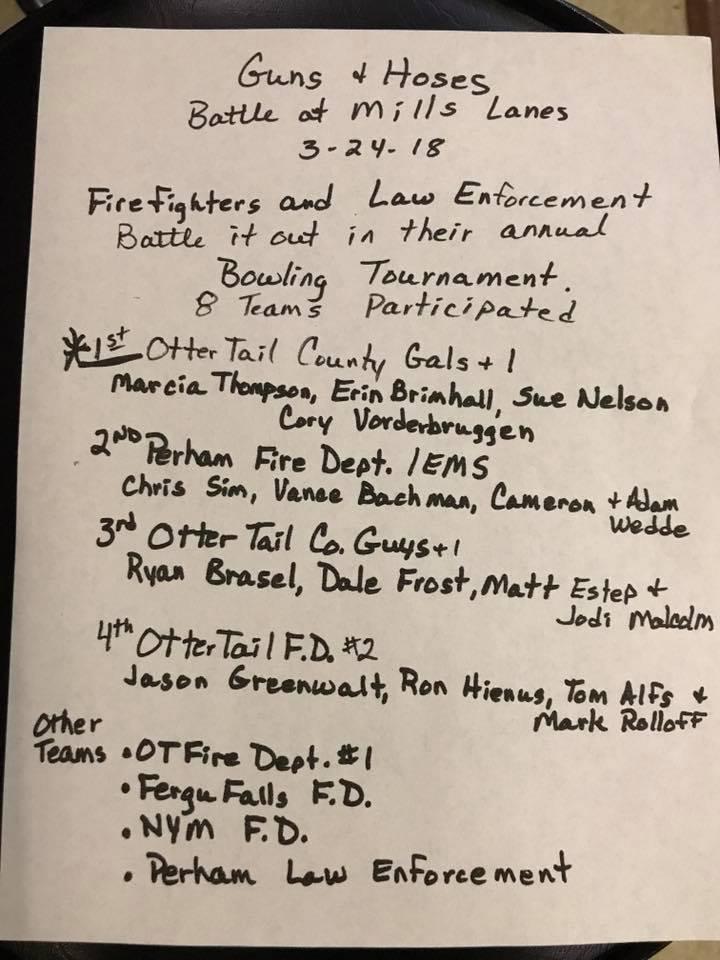 Guns & Hoses
Battle at Mills Lanes
3-24-18
Firefighters and Law Enforcement
Battle it out in their annual
Bowling Tournament.
8 Teams Participated
*1st Otter Tail County Gals + 1
Marcia Thompson, Erin Brimhall, Sue Nelson
Cory Vorderbruggen
2ND Perham Fire Dept. / EMS
Chris Sim, Vance Bachman, Cameron + Adam
Wedde
3rd Otter Tail Co. Guys + 1
Ryan Brasel, Dale Frost, Matt Estep +
Jodi Malcolm
4th Otter Tail F.D. #2
Jason Greenwalt, Ron Hienus, Tom Alfs &
Mark Rolloff
Other
Teams • OT Fire Dept. #1
• Fergu Falls F.D.
• NYM F.D.
• Perham Law Enforcement